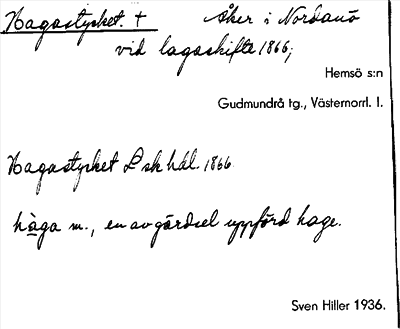 Hagastycket. † Åker i Nordanö
vid lagaskifte 1866;
Hemsö s:n
Gudmundrå tg., Västernorrl. l.
Hagastycket L sk hdl. 1866
hàga m., en av gärdsel uppförd hage.
Sven Hiller 1936.